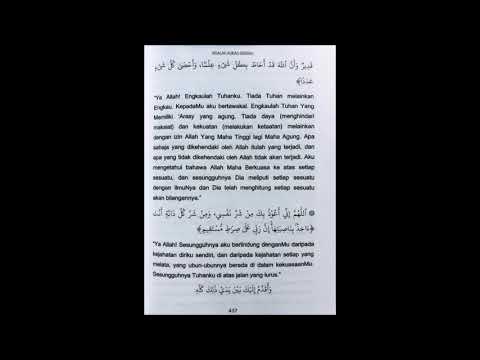 قَدِيرٌ وَأَنَّ اللَّهَ قَدْ أَحَاطَ بِكُلِّ شَيْءٍ عِلْمًا، وَأَحْصَى كُلَّ شَيْءٍ
عَدَدًا﴾
"Ya Allah! Engkaulah Tuhanku. Tiada Tuhan melainkan
Engkau. KepadaMu aku bertawakal. Engkaulah Tuhan Yang
Memiliki 'Arasy yang agung. Tiada daya (menghindari
maksiat) dan kekuatan (melakukan ketaatan) melainkan
dengan izin Allah Yang Maha Tinggi lagi Maha Agung. Apa
sahaja yang dikehendaki oleh Allah itulah yang terjadi, dan
apa yang tidak dikehendaki oleh Allah tidak akan terjadi. Aku
mengetahui bahawa Allah Maha Berkuasa ke atas setiap
sesuatu, dan sesungguhnya Dia meliputi setiap sesuatu
dengan ilmuNya dan Dia telah menghitung setiap sesuatu
akan bilangannya."
اللَّهُمَّ إِنِّي أَعُوذُ بِكَ مِنْ شَرِّ نَفْسِي، وَمِنْ شَرِّ كُلِّ دَابَّةٍ أَنْتَ
ءَاخِذٌ بِنَاصِيَتِهَا إِنَّ رَبِّي عَلَى صِرَاطٍ مُسْتَقِيمٍ﴾
"Ya Allah! Sesungguhnya aku berlindung denganMu daripada
kejahatan diriku sendiri, dan daripada kejahatan setiap yang
melata, yang ubun-ubunnya berada di dalam kekuasaanMu.
Sesungguhnya Tuhanku di atas jalan yang lurus."
وَأُقَدِّمُ إِلَيْكَ بَيْنَ يَدَيْ ذَلِكَ كُلِّهِ
437